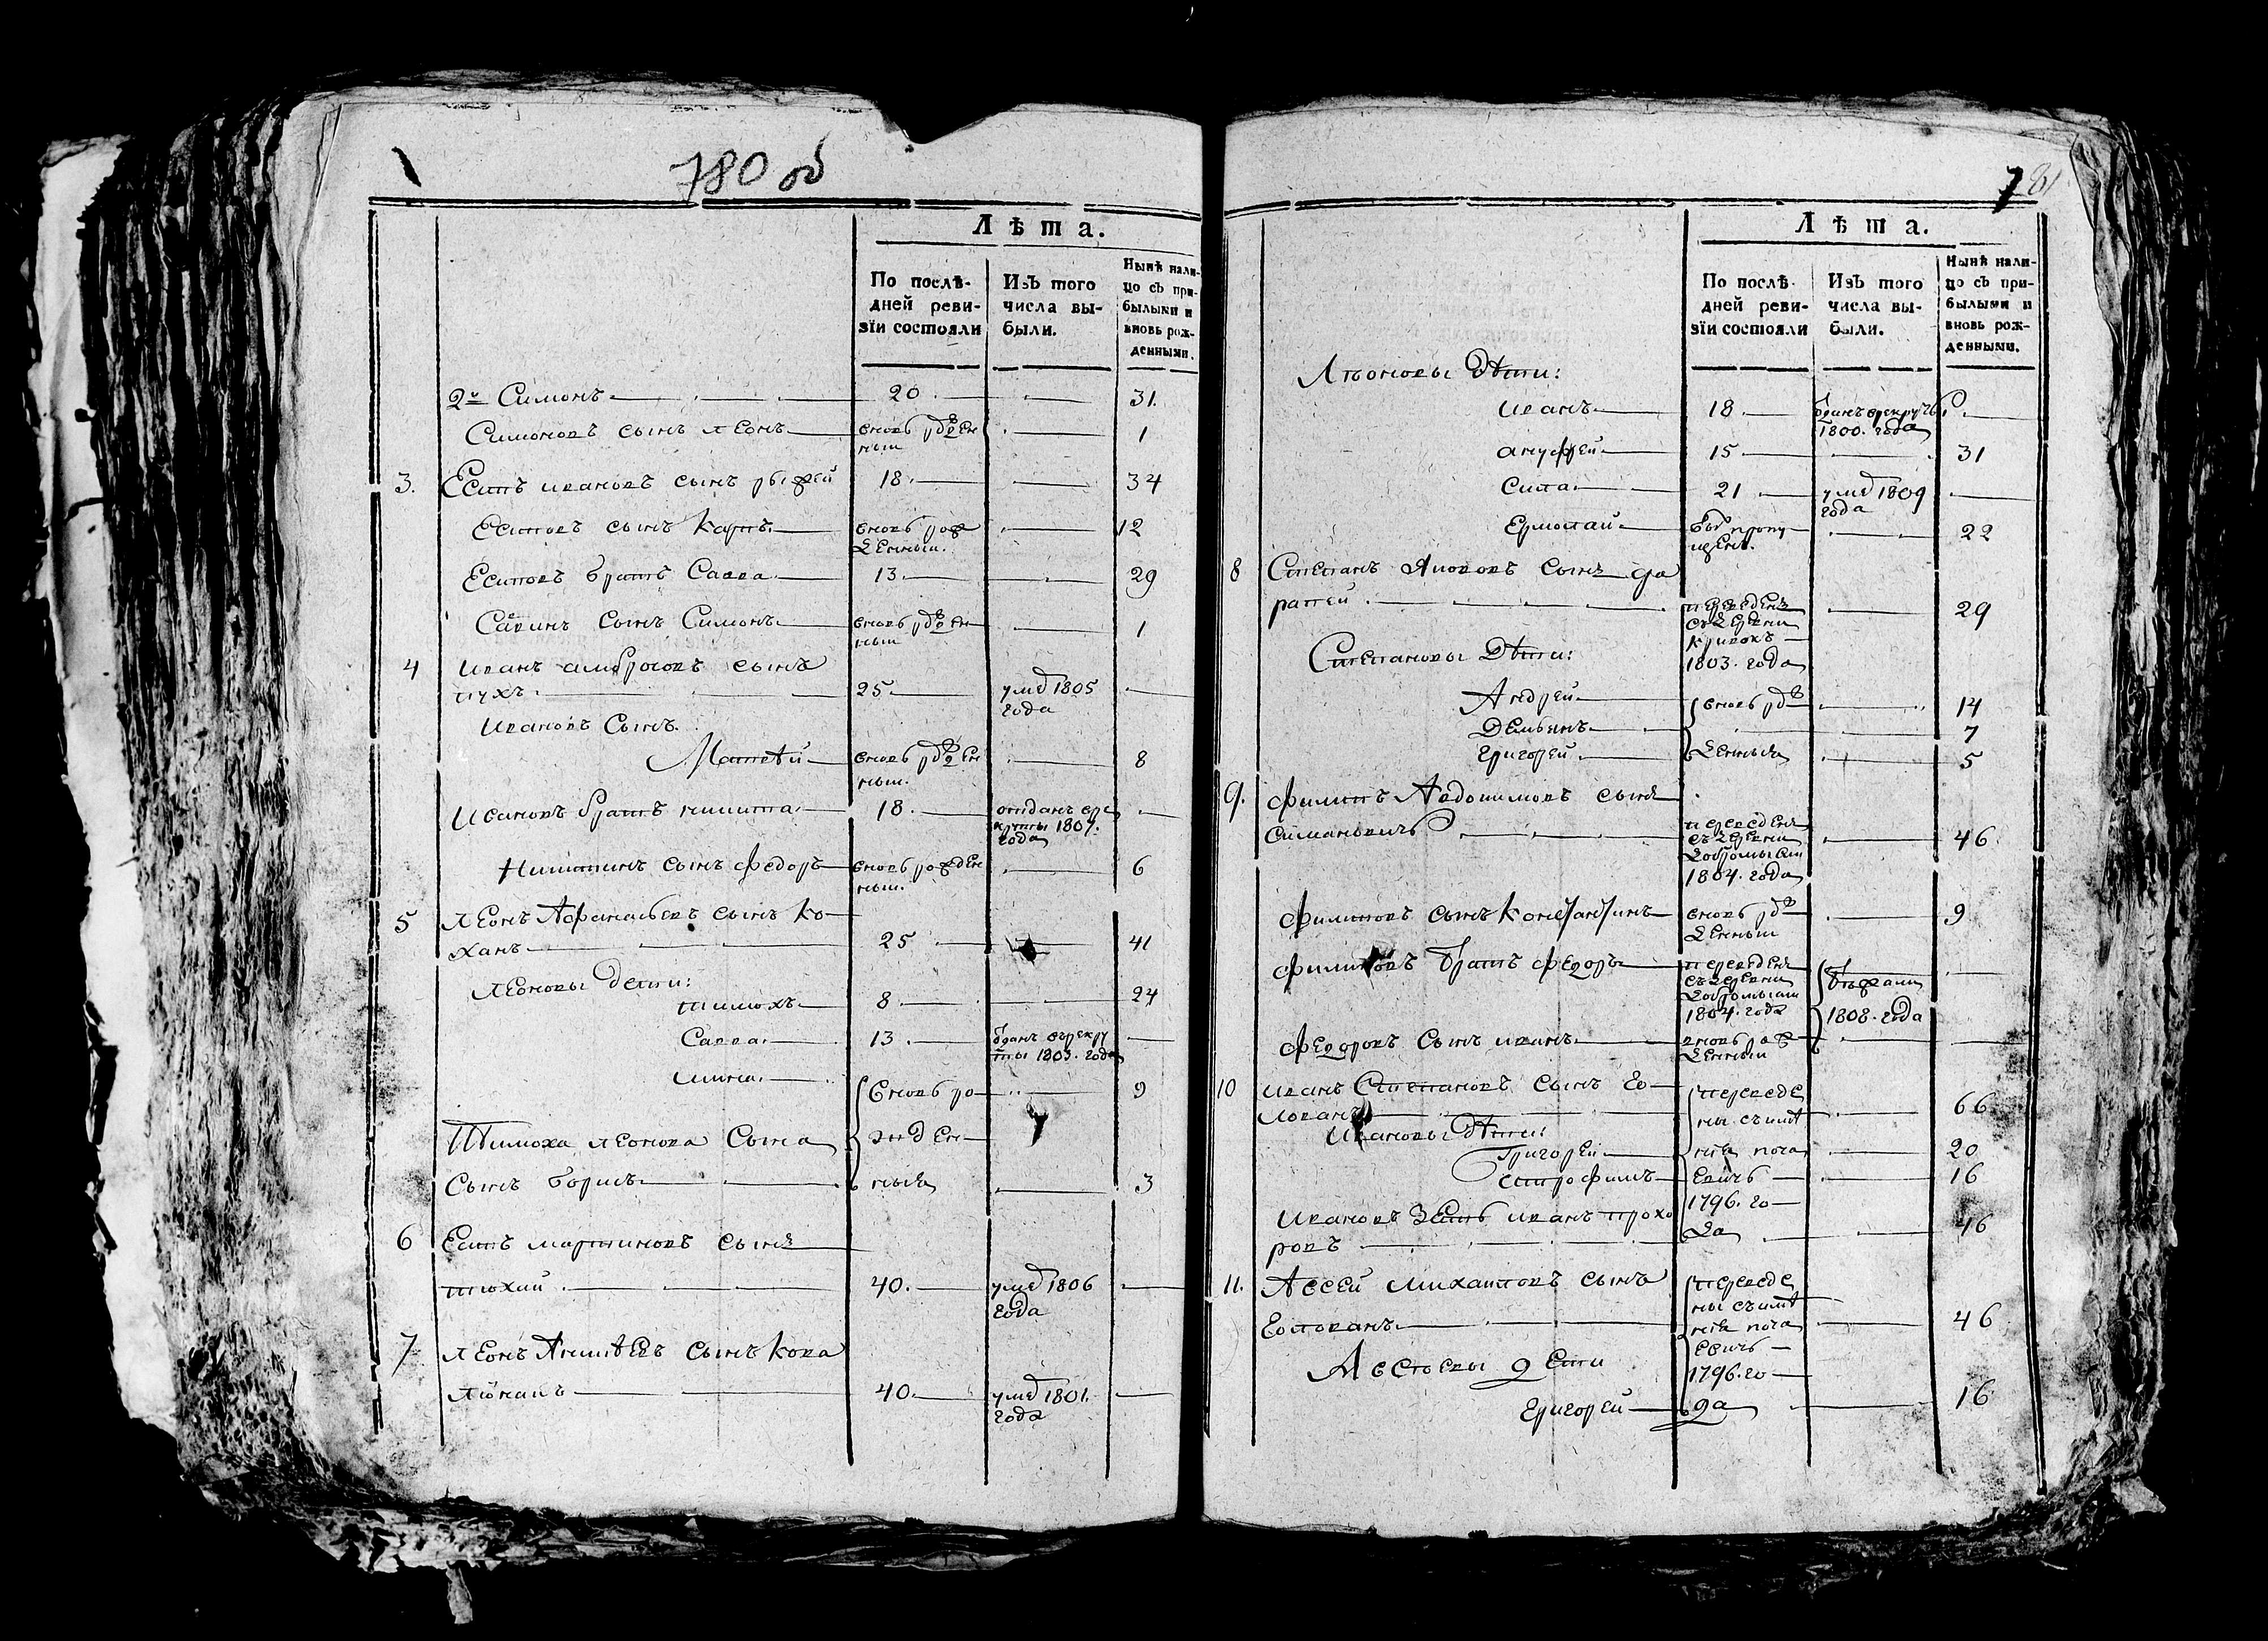 780 об
Лѣта.
По послѣ-
дней реви-
зїи состояли
Изъ того
числа вы-
были.
Нынѣ нали-
цо съ при-
былыми и
вновь рож-
денными.
2й Симонъ 20 31.
Симоновъ сынъ леонъ вновь рожден 1
ный
3. Есипъ ивановъ сынъ рыжей 18. 34
Есиповъ сынъ карпъ вновь рож 12
денный.
Есиповъ братъ Савва 13. 29
Савинъ сынъ Симонъ вновь рожден 1
ный
4 иванъ амбросовъ сынъ
пухъ 25. умре 1805
года
ивановъ Сынъ.
Матвѣй вновь рожден 8
ный.
Ивановъ братъ никита 18. отданъ вре
круты 1807.
года
Никитинъ сынъ федоръ вновь рожден 6
ный.
5 леонъ Афанасьевъ сынъ ко
ханъ 25 41
леоновы дети:
тимохъ 8 24
Савва. 13 отданъ въ рекру
ты 1805. года
мина. вновь ро 9
Тимоха леонова Сына жден
Сынъ борисъ ныя 3
6 Есипъ мартиновъ сынъ
тюхай 40. умре 1806
года
7 леонъ Аникѣевъ сынъ кова
люнакъ 40. умре 1801.
года
781
Лѣта.
По послѣ-
дней реви-
зїи состояли
Изъ того
числа вы-
были.
Нынѣ нали-
цо съ при-
былыми и
вновь рож-
денными.
Лѣоновы Дѣти:
иванъ 18. отданъ врекруты
1800. года
ануфрей 15 31
Сила 21 умре 1809
года
Ермолай былъ пропу 22
щенъ.
8 Степанъ Якововъ сынъ
переведенъ 29
съ деревни
Кривокъ
Степановы Дѣти: 1803. года
Андрей вновь рож 14
Демьянъ 7
григорей денныя 5
9. филипъ Авдокимовъ сынъ
Симановичъ переведенъ
съ деревни 46
добромысли
1804. года
филиповъ сынъ константинъ вновь рож 9
денный
филиповъ братъ федоръ переведенъ
съ деревни бѣжали
добромысли
1804. года 1808. года
федоровъ Сынъ иванъ вновь рож
денный
10 иванъ Степановъ сынъ го переведе
лованъ ны съ имѣ 66
Ивановы Дѣти:
Григорей нія поча 20
трофимъ евичъ 16
1796. го
Ивановъ Зять иванъ прохо
ровъ да 46
11. Авсей михаиловъ сынъ переведе
ны съ имѣ
голованъ нія поча 46
евичъ
Авсѣевы дети 1796. го
григорей да 16